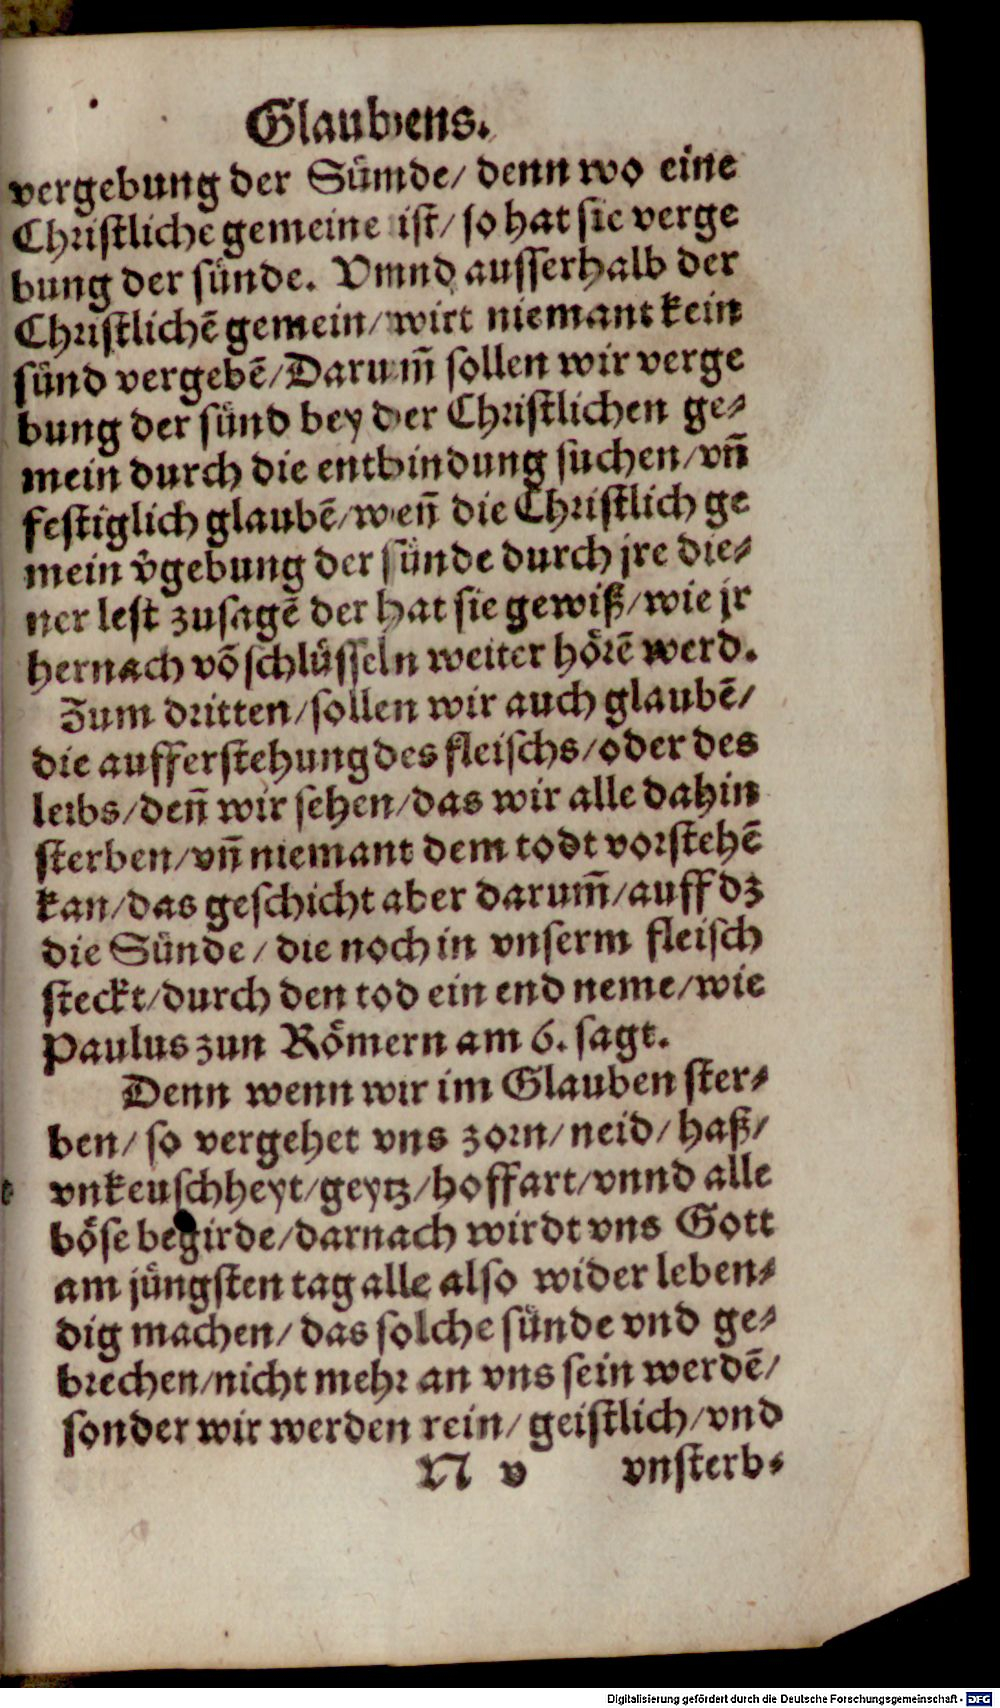 Glaubens.
vergebung der Sünde/ denn wo eine
Christliche gemeine ist/ so hat sie verge
bung der sünde. Vnnd ausserhalb der
Christlichē gemein/ wirt niemant kein
sünd vergebē/ Darum̃ sollen wir verge
bung der sünd bey der Christlichen ge⸗
mein durch die entbindung suchen/ vñ
festiglich glaubē/ weñ die Christlich ge
mein v̊gebung der sünde durch jre die⸗
ner lest zusagē der hat sie gewiß/ wie jr
hernach vō schlüsseln weiter hörē werd.
Zum dritten/ sollen wir auch glaubē/
die aufferstehung des fleischs/ oder des
leibs/ deñ wir sehen/ das wir alle dahin
sterben/ vñ niemant dem todt vorstehē
kan/ das geschicht aber darum̃/ auff dz
die Sünde/ die noch in vnserm fleisch
steckt/ durch den tod ein end neme/ wie
Paulus zun Römern am 6. sagt.
Denn wenn wir im Glauben ster⸗
ben/ so vergehet vns zorn/ neid/ haß/
vnkeuschheyt/ geytz/ hoffart/ vnnd alle
böse begirde/ darnach wirdt vns Gott
am jüngsten tag alle also wider leben⸗
dig machen/ das solche sünde vnd ge⸗
brechen/ nicht mehr an vns sein werdē/
sonder wir werden rein/ geistlich/ vnd
N v vnsterb⸗
Digitalisierung gefördert durch die Deutsche Forschungsgemeinschaft - DFG